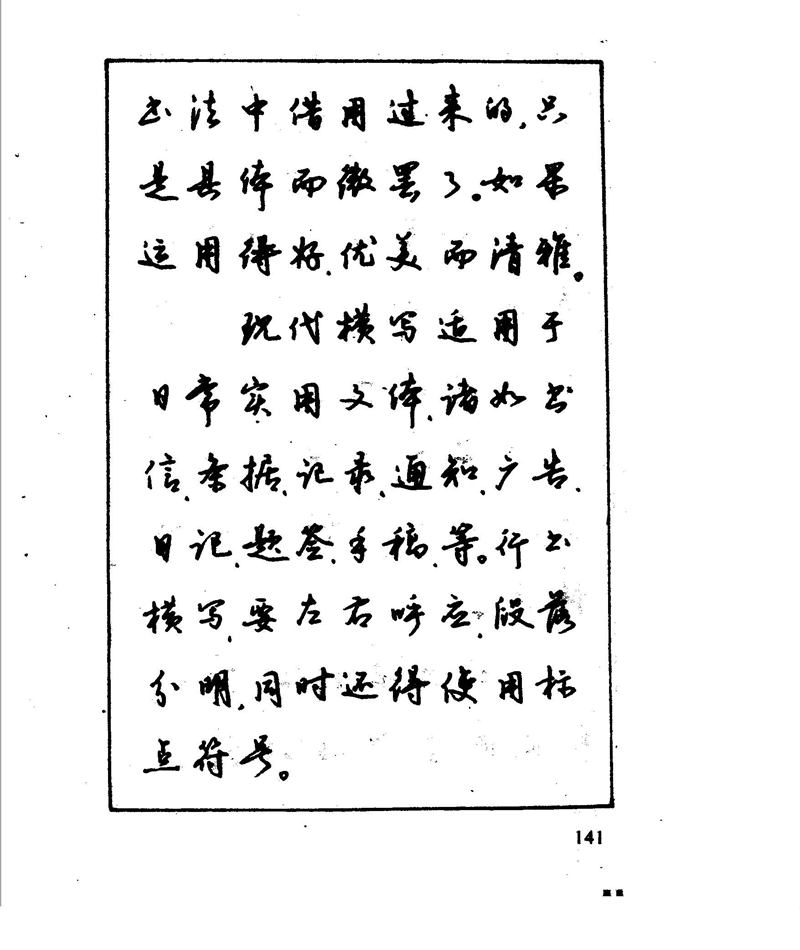 书法中借用过来的,只
是具体而微罢了。如果
运用得好,优美而清雅。
现代横写适用于
日常实用文体,诸如书
信、条据、记录、通知、广告、
日记、题签、手稿、等。行书
横写,要左右呼应,段落
分明,同时还得使用标
点符号。
141